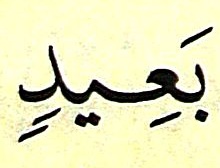 بَعِيدِ